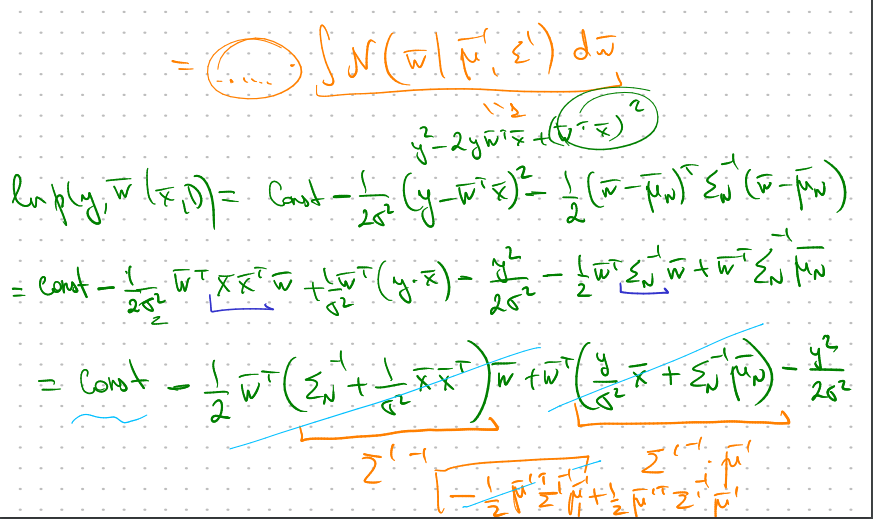 = (......) ∫ N(w̄ | μ̄', Σ') dw̄
= 1
y² - 2y w̄ᵀx̄ + (w̄ᵀx̄)²
ln p(y, w̄ | x̄, D) = Const - 1/2σ² (y - w̄ᵀx̄)² - 1/2 (w̄ - μ̄_N)ᵀ Σ_N⁻¹ (w̄ - μ̄_N)
= Const - 1/2σ² w̄ᵀ x̄ x̄ᵀ w̄ + 1/σ² w̄ᵀ (y·x̄) - y²/2σ² - 1/2 w̄ᵀ Σ_N⁻¹ w̄ + w̄ᵀ Σ_N⁻¹ μ̄_N
= Const - 1/2 w̄ᵀ (Σ_N⁻¹ + 1/σ² x̄ x̄ᵀ) w̄ + w̄ᵀ (y/σ² x̄ + Σ_N⁻¹ μ̄_N) - y²/2σ²
Σ'⁻¹ Σ'⁻¹·μ̄'
- 1/2 μ̄'ᵀ Σ'⁻¹ μ̄' + 1/2 μ̄'ᵀ Σ'⁻¹ μ̄'